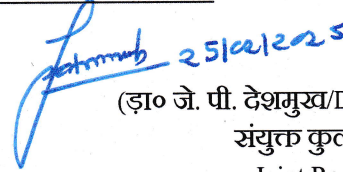 25/02/2025
(ड़ा० जे. पी. देशमुख/
संयुक्त कुल
Joint Re